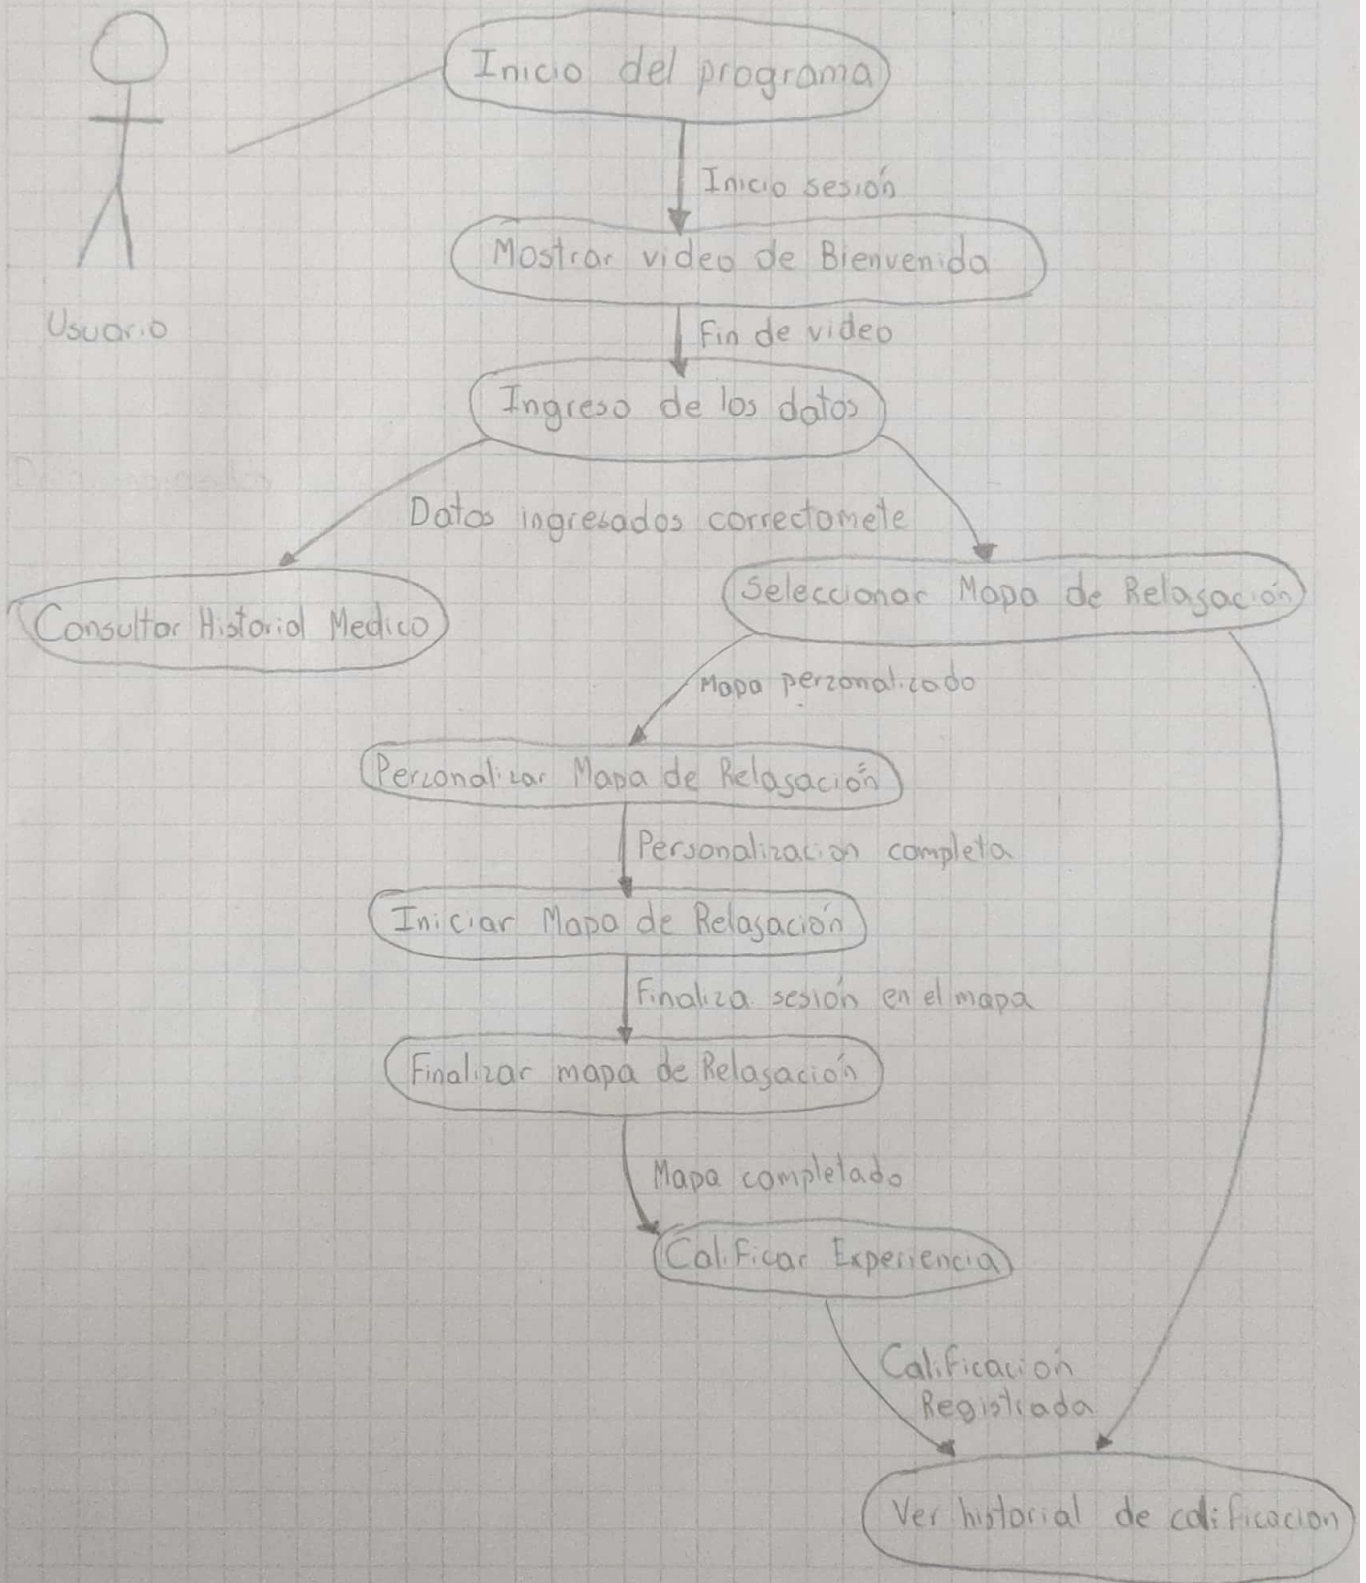 Inicio del programa
Inicio sesión
Mostrar video de Bienvenida
Usuario
Fin de video
Ingreso de los datos
Datos ingresados correctomete
Consultar Historial Medico
Seleccionar Mapa de Relagación
Mapa perzonalizado
Perzonalizar Mapa de Relagación
Personalización completa
Iniciar Mapa de Relagación
Finaliza sesión en el mapa
Finalizar mapa de Relagación
Mapa completado
Calificar Experiencia
Calificación
Registrada
Ver historial de calificacion